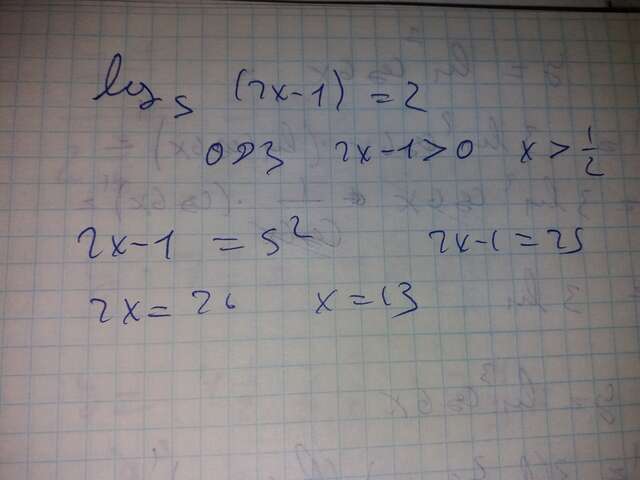 log₅ (2x-1) = 2
ОДЗ 2x-1>0 x > 1/2
2x-1 = 5² 2x-1 = 25
2x = 26 x = 13